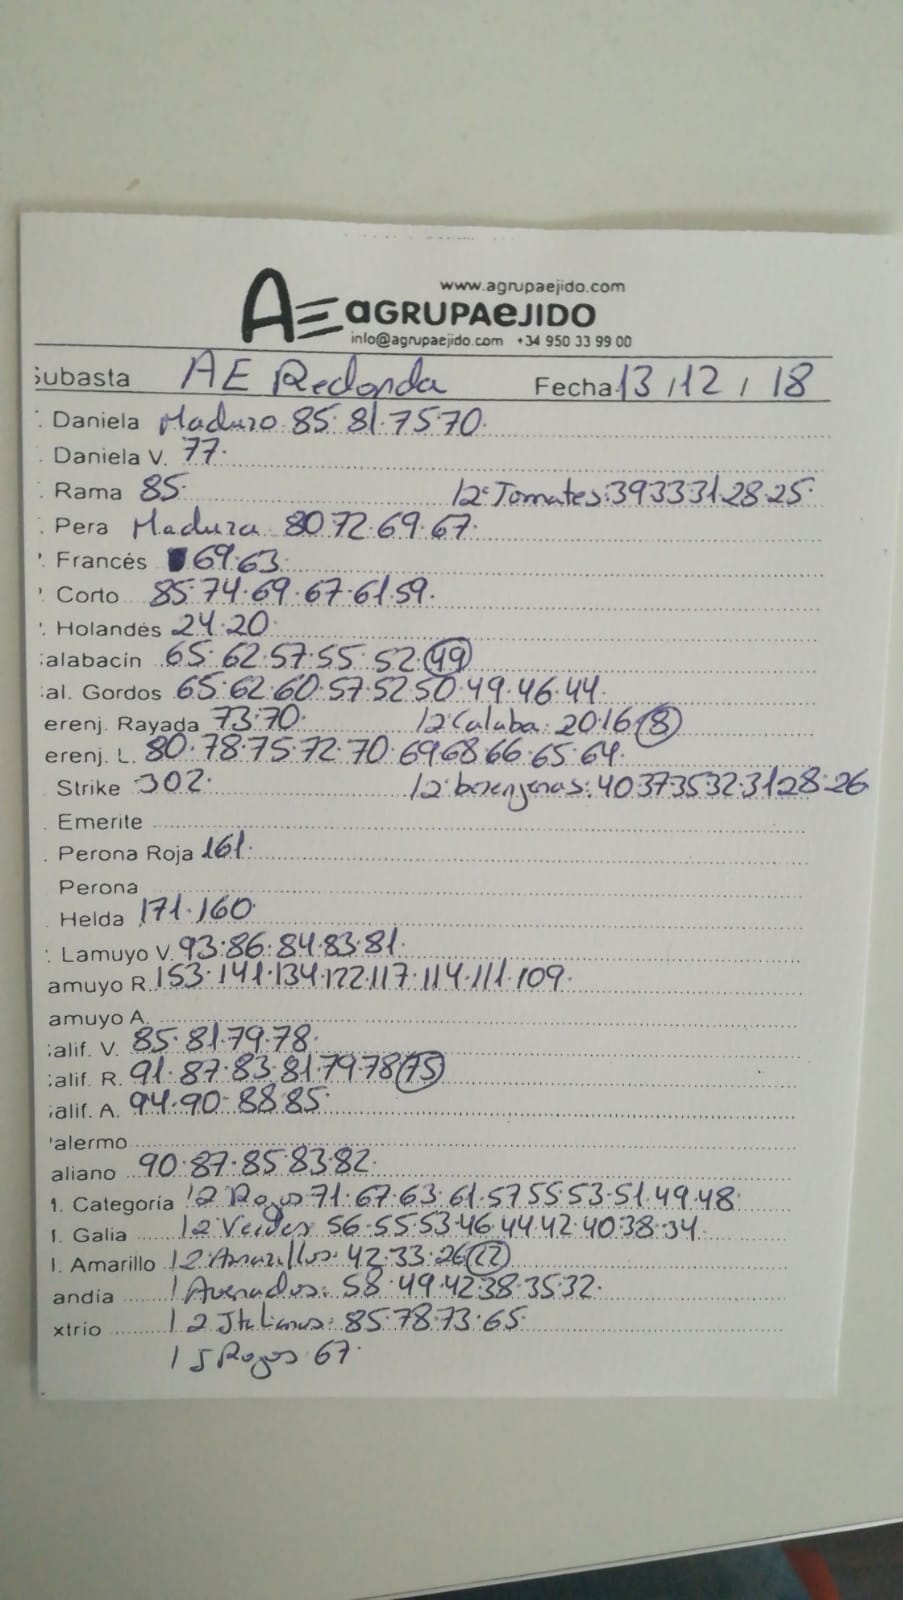 www.agrupaejido.com
AE aGRUPAeJIDO
info@agrupaejido.com +34 950 33 99 00
Subasta AE Redonda Fecha 13 / 12 / 18
Daniela Maduro 85·81·75·70·
Daniela V. 77·
Rama 85· 12·Tomates:39·33·31·28·25·
Pera Madura 80·72·69·67·
Francés 69·63·
Corto 85·74·69·67·61·59·
Holandés 24·20·
alabacín 65·62·57·55·52·49
al. Gordos 65·62·60·57·52·50·49·46·44·
erenj. Rayada 73·70· 12·Calaba: 20·16·8
erenj. L. 80·78·75·72·70·69·68·66·65·64·
Strike 302· 12·berenjenas: 40·37·35·32·31·28·26
Emerite
Perona Roja 161·
Perona
Helda 171·160·
Lamuyo V. 93·86·84·83·81·
amuyo R. 153·141·134·122·117·114·111·109·
amuyo A.
alif. V. 85·81·79·78·
alif. R. 91·87·83·81·79·78·75
alif. A. 94·90·88·85·
alermo
aliano 90·87·85·83·82·
1. Categoría 12 Rojos 71·67·63·61·57·55·53·51·49·48·
1. Galia 12 Verdes 56·55·53·46·44·42·40·38·34·
l. Amarillo 12 Amarillos: 42·33·26·22
andía 1 Asurados: 58·49·42·38·35·32·
xtrio 12 Italianos: 85·78·73·65·
15 Rojos 67·